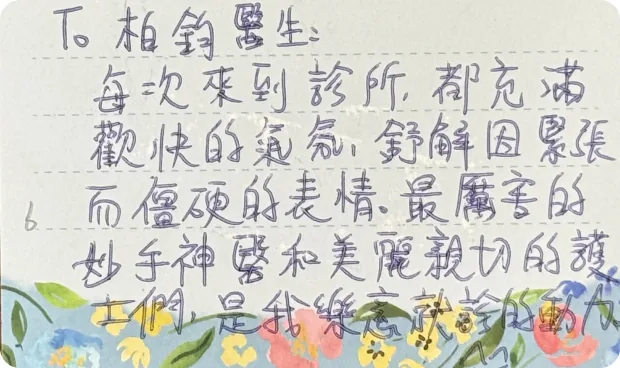 To 柏鈞醫生：
每次來到診所，都充滿
歡快的氣氛，舒解因緊張
而僵硬的表情。最厲害的
妙手神醫和美麗親切的護
士們，是我樂意就診的動力